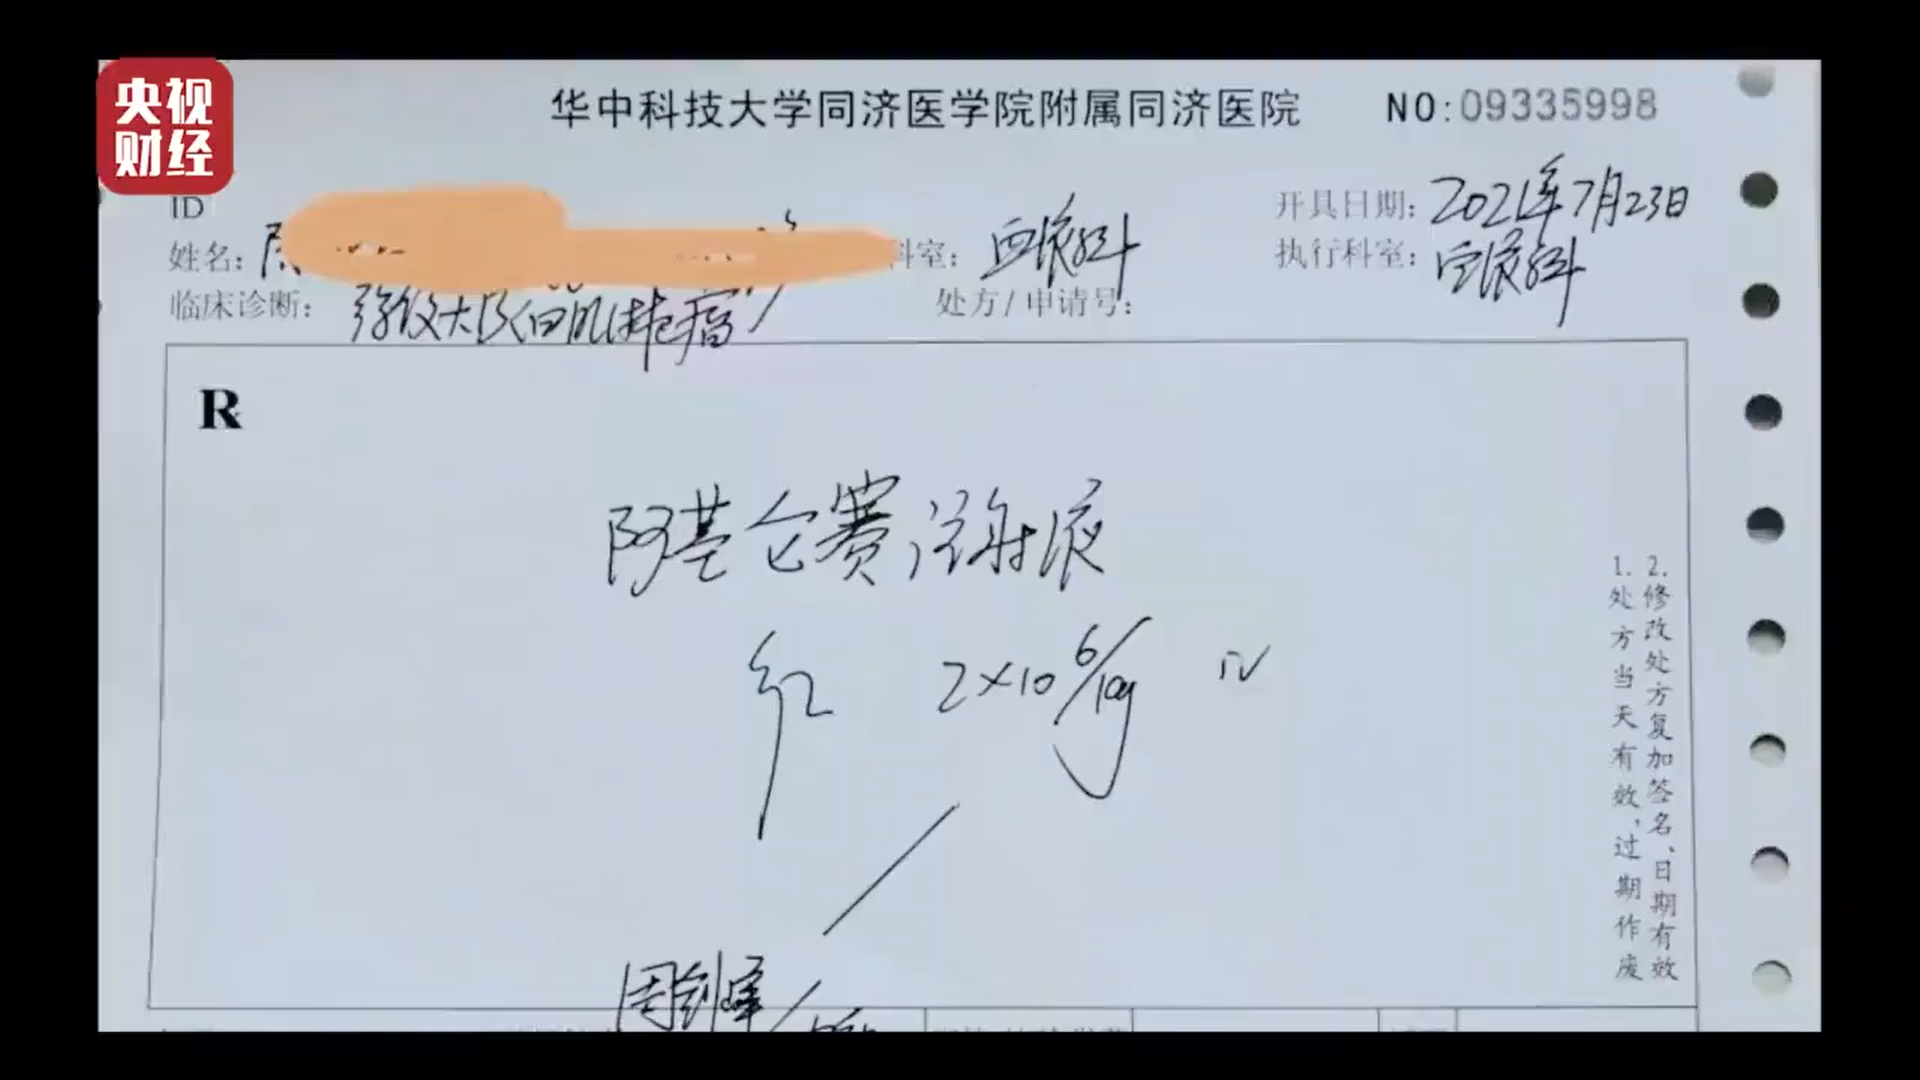 央视
财经
华中科技大学同济医学院附属同济医院 NO:09335998
ID
开具日期: 2021年7月23日
姓名: 科室: 血液科
执行科室: 血液科
临床诊断: 弥漫大B细胞淋巴瘤
处方/申请号:
R
阿基仑赛注射液
2×10⁶/kg iv
1.处方当天有效,过期作废
2.修改处方复加签名、日期有效
周剑峰